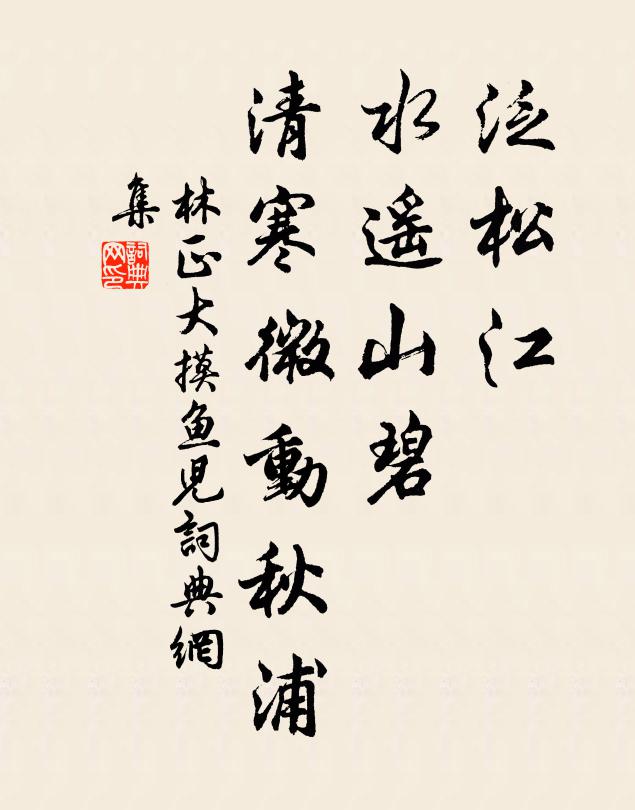 泛松江
水遥山碧
清寒微動秋浦
林正大摸鱼児詞典網
集
詞典
网印